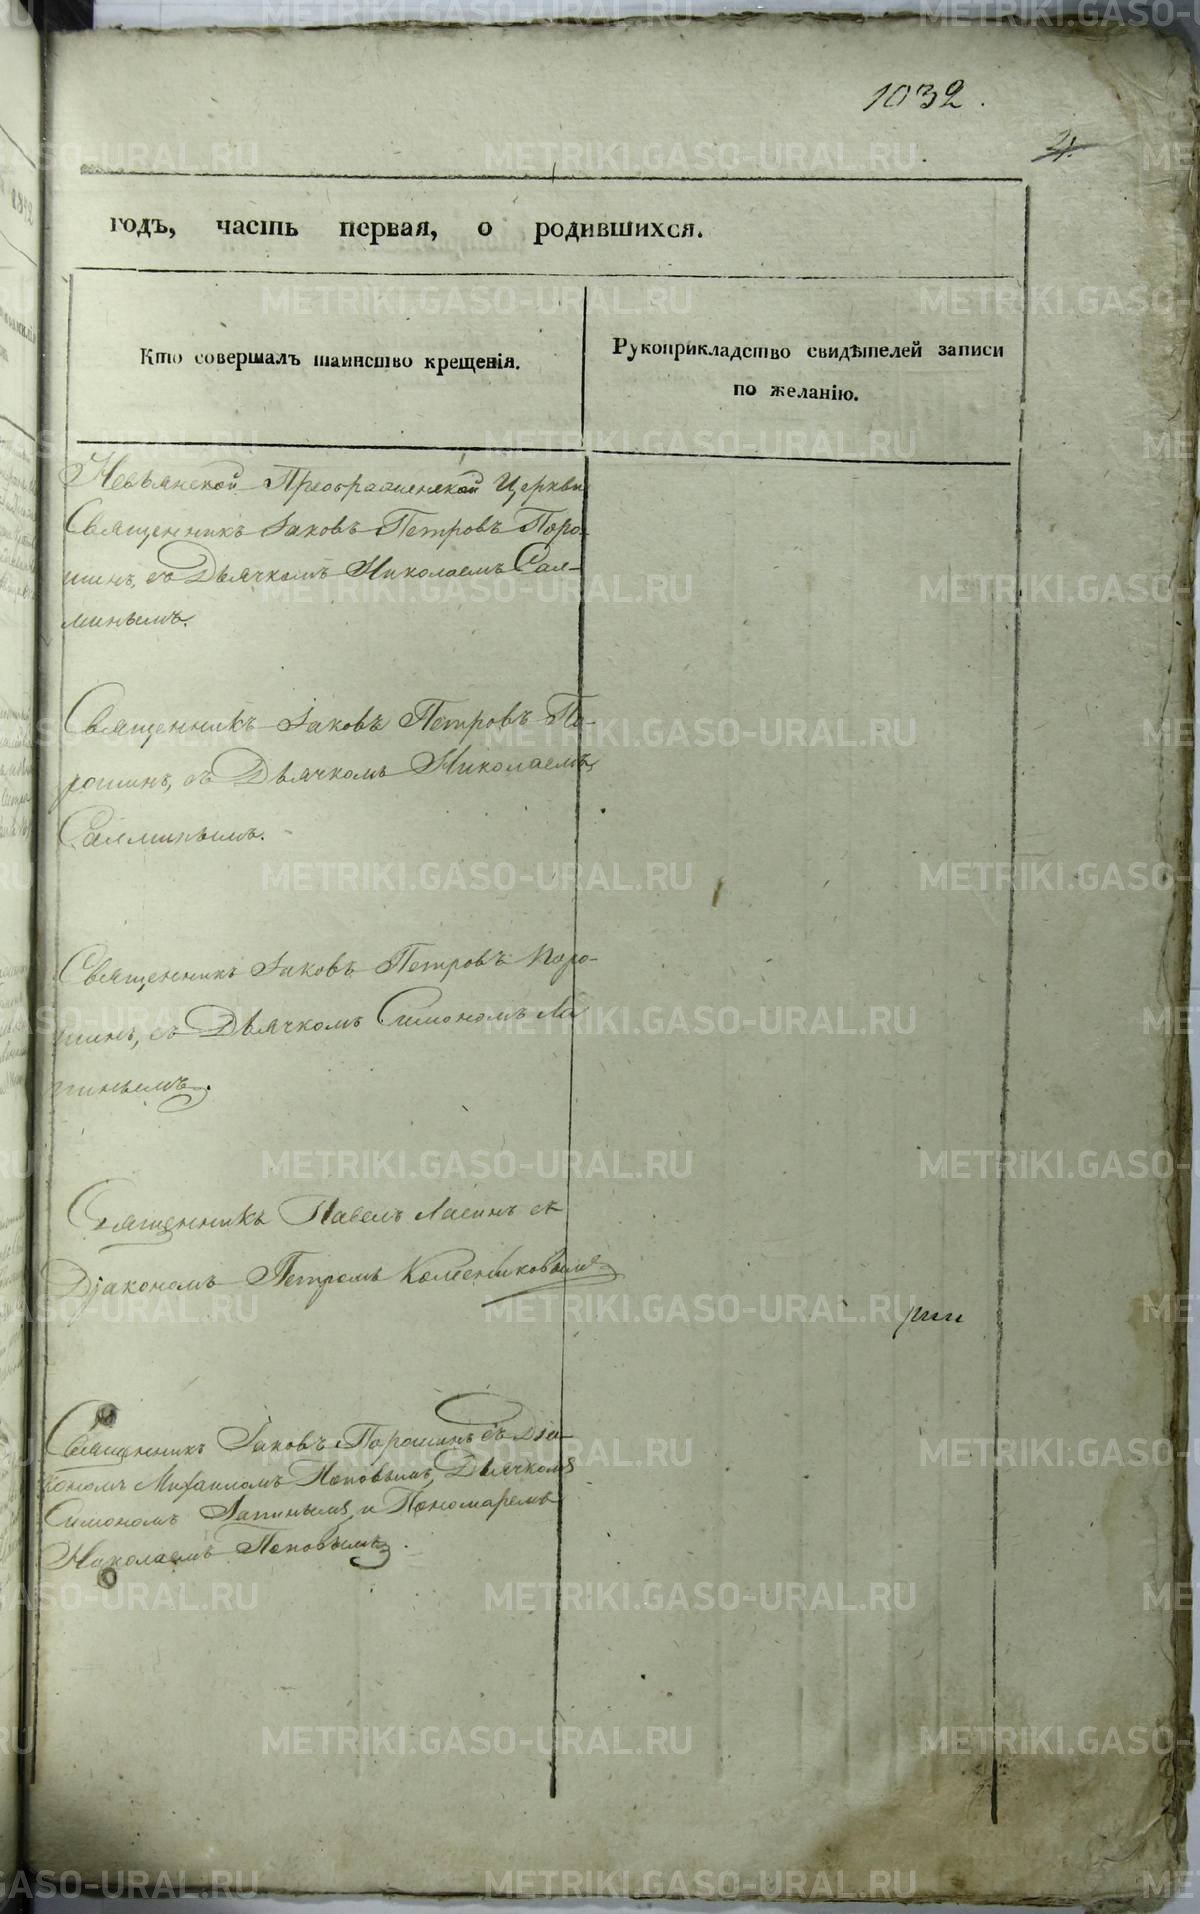 1032.
4.
годъ, часть первая, о родившихся.
Кто совершалъ таинство крещенія.
Рукоприкладство свидѣтелей записи
по желанію.
Невьянской Преображенской Церкви
Священникъ Іаковъ Петровъ Поро-
шинъ, съ Дьячкомъ Николаемъ Сал-
минымъ.
Священникъ Іаковъ Петровъ По-
рошинъ, съ Дьячкомъ Николаемъ
Салминымъ.
Священникъ Іаковъ Петровъ Поро-
шинъ, съ Дьячкомъ Симономъ Ла
пинымъ.
Священникъ Павелъ съ
Діакономъ Петромъ
Священникъ Іаковъ Порошинъ съ Діа-
кономъ Михаиломъ Поповымъ, Дьячкомъ
Симономъ Лапинымъ, и Пономаремъ
Николаемъ Поповымъ.
METRIKI.GASO-URAL.RU